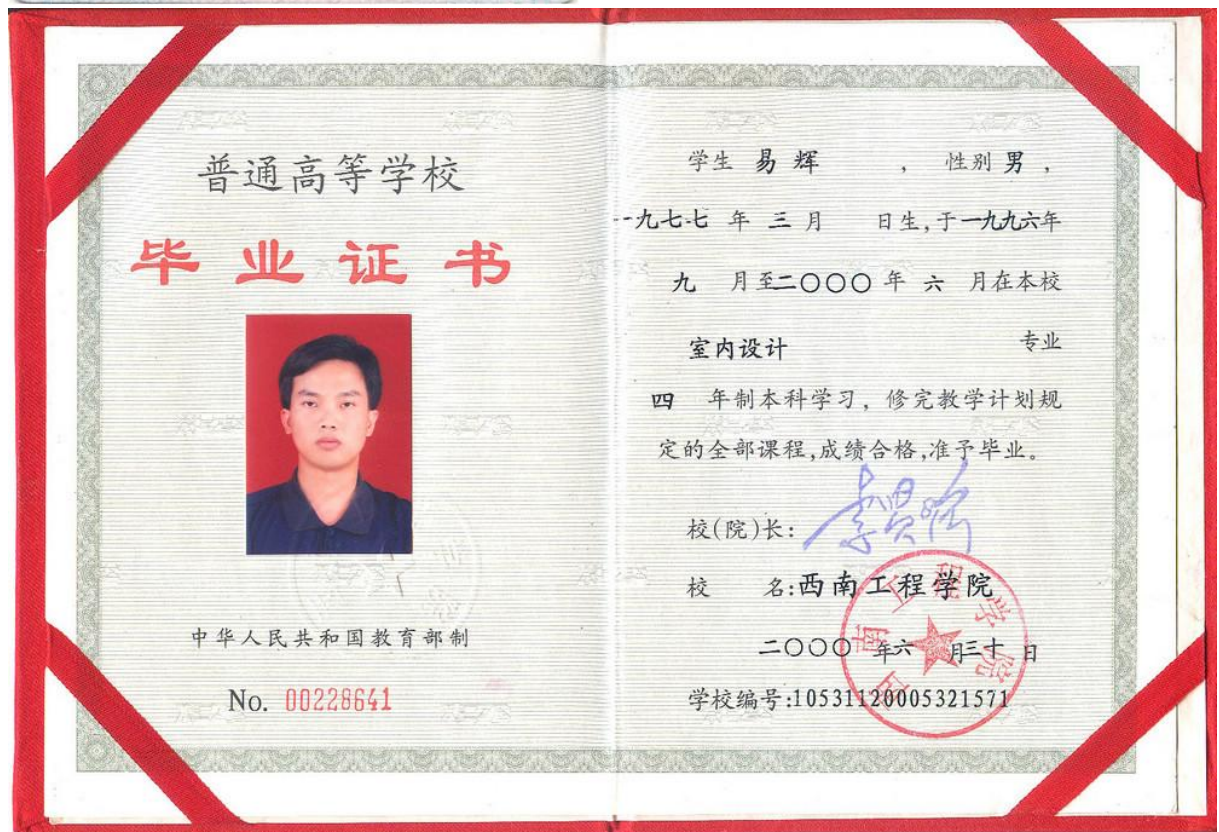 普通高等学校
毕业证书
中华人民共和国教育部制
No. 00228641
学生 易辉 , 性别 男 ,
一九七七 年 三 月 日生,于一九九六年
九 月至二〇〇〇 年 六 月在本校
室内设计 专业
四 年制本科学习, 修完教学计划规
定的全部课程,成绩合格,准予毕业。
校(院)长:
校 名:西南工程学院
二〇〇〇 年六 月三十 日
学校编号:10531120005321571
西南工程学院